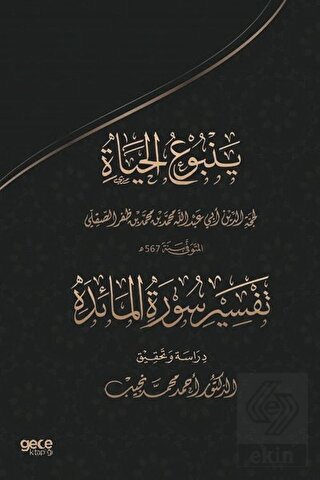 ينبوع الحياة
لحجة الدين أبي عبد الله محمد بن محمد بن ظفر الصقلي
المتوفى سنة 567 هـ
تفسير سورة المائدة
دراسة وتحقيق
الدكتور أحمد محمد نجيب
gece
kitaplığı
ekin